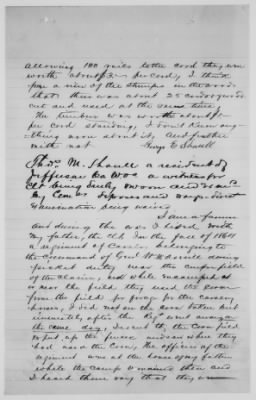 allowing 100 rails to the cord they were
worth about $3 per cord, I think
from a view of the stumps in the woods
that there was about 25 cords of wood
cut and used at the same time,
The timber was worth about
per cord standing, I don't know any-
thing more about it, And further
saith not George C
Thos M. a resident of
Jefferson Co W Va a witness for
being duly sworn and
Deposes and says direct
Examination being waived
I am a farmer
and during the war I lived with
my father, that in the fall of 1864
a regiment of Cavalry belonging to
the command of Gen'l doing
picket duty near the cornfield
of the claim, and while encamped at
or near the field they used the corn
from the field for forage for the cavalry
horses, I did not see the corn taken but
immediately after the Reg't went away on
the same day, I went to the Cornfield
to put up the fence and saw where they
had used the Corn. The officers of the
regiment were at the house of my father
while the camp remained there and
I heard them say that they